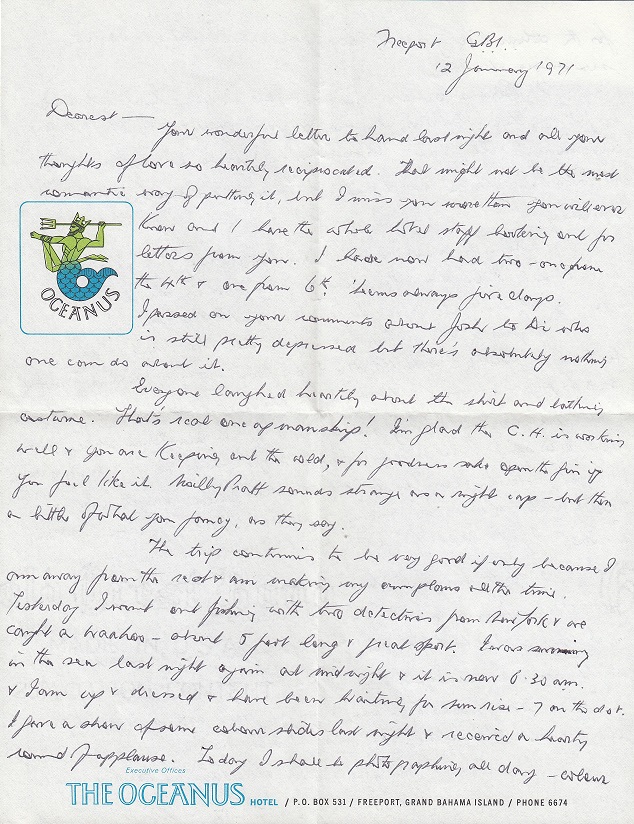 Freeport G.B.I.
12 January 1971
Dearest —
Your wonderful letter to hand last night and all your
thoughts of love so heartily reciprocated. That might not be the most
romantic way of putting it, but I miss you more than you will ever
know and I have the whole hotel staff looking out for
letters from you. I have now had two - one from
the 4th & one from 6th. Seems always five days.
I passed on your comments about Josh to Di who
is still pretty depressed but there's absolutely nothing
one can do about it.
Everyone laughed heartily about the shirt and bathing
costume. That's real one upmanship! I'm glad the C.H. is working
well & you are keeping out the cold, & for goodness sake open the gin if
you feel like it. Noilly Pratt sounds strange as a night cap - but then
a little of what you fancy, as they say.
The trip continues to be very good if only because I
am away from the rest & am making my own plans all the time.
Yesterday I went out fishing with two detectives from New York & we
caught a waahoo - about 5 foot long & great sport. I was swimming
in the sea last night again at midnight & it is now 6.30 am.
& I am up & dressed & have been waiting for sun rise - 7 on the dot.
I gave a show of some colour slides last night & received a hearty
round of applause. Today I shall be photographing all day - colour
OCEANUS
Executive Offices
THE OCEANUS HOTEL / P.O. BOX 531 / FREEPORT, GRAND BAHAMA ISLAND / PHONE 6674